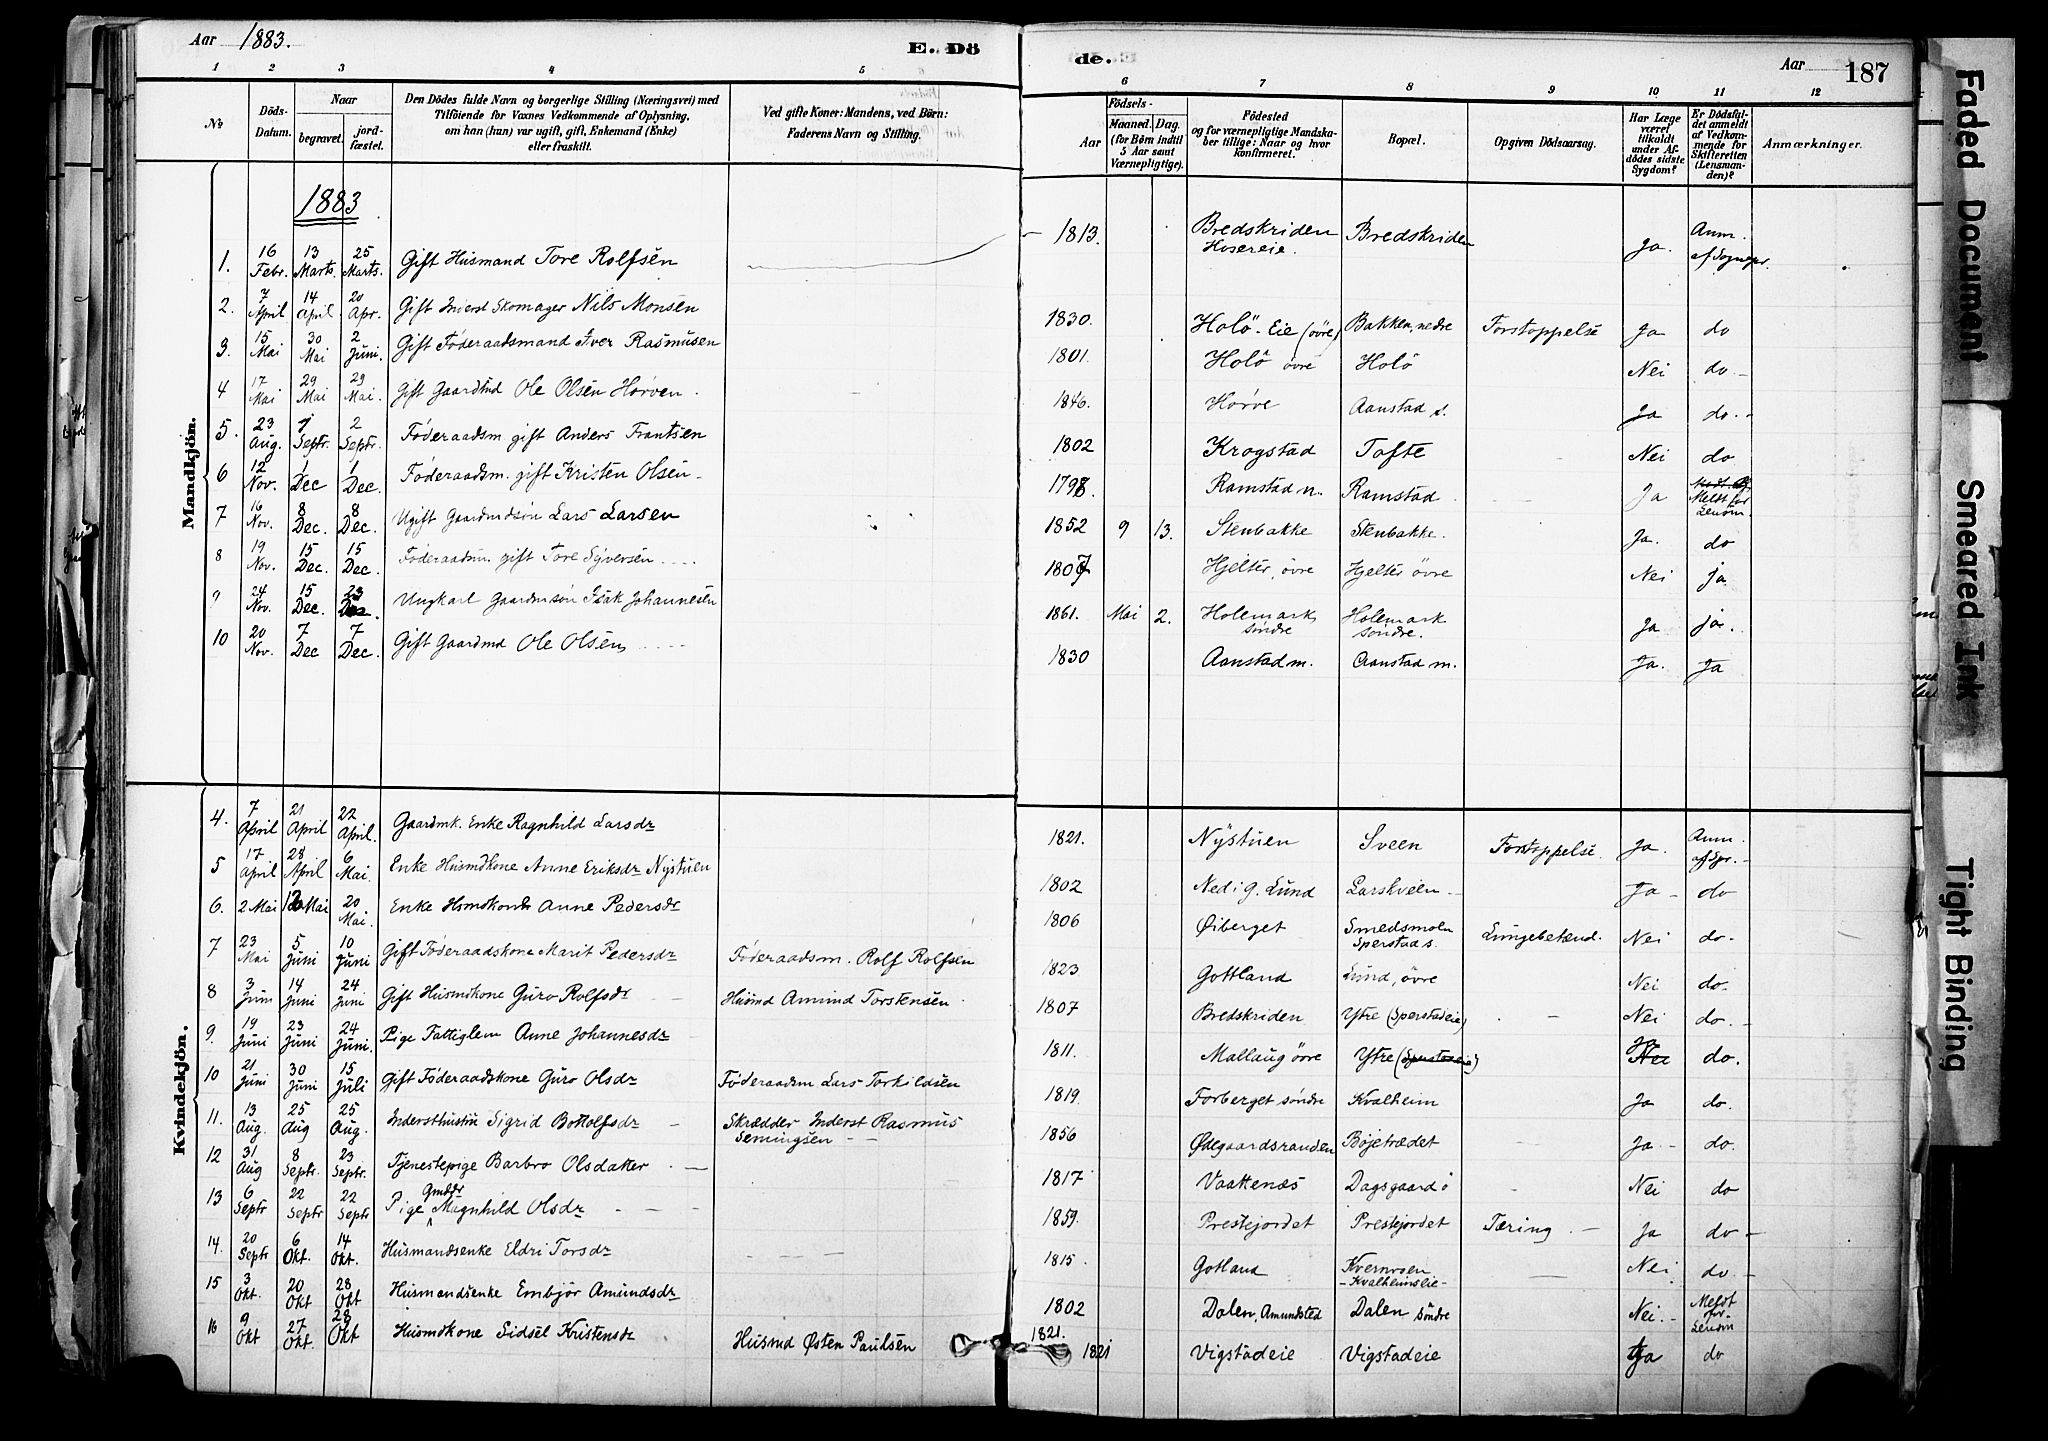 Aar 1883.
E. Dö
de.
Aar 187
1 2 3 4 5
6 7 8 9 10 11 12
No
Döds-Datum.
Naar
begravet.
jord-fæstet.
Den Dödes fulde Navn og borgerlige Stilling (Næringsvei) med
Tilföiende for Voxnes Vedkommende af Oplysning,
om han (hun) var ugift, gift, Enkemand (Enke)
eller fraskilt.
Ved gifte Koner: Mandens, ved Börn:
Faderens Navn og Stilling.
Födsels-
Aar
Maaned. Dag.
(for Börn indtil
5 Aar samt
Værnepligtige).
Födested
og for værnepligtige Mandska-
ber tillige: Naar og hvor
konfirmeret.
Bopæl.
Opgiven Dödsaarsag.
Har Læge
været
tilkaldt
under Af-
dödes sidste
Sygdom?
Er Dödsfal-
det anmeldt
af Vedkom-
mende for
Skifteretten
(Lensman-
den)?
Anmærkninger.
Mandkjön.
1883
1. 16 Febr. 13 Marts. 25 Marts. Gift Husmand Tore Rolfsen 1813. Bredskriden Hosereie. Bredskriden Ja. Anm. af Sognepr.
2. 7 April 14 April 20 Apr. Gift Inderst Skomager Nils Monsen 1830. Holö-Eie (övre) Bakken, nedre Forstoppelse Ja do
3. 15 Mai 30 Mai 2 Juni. Gift Föderaadsmand Iver Rasmusen 1801. Holö övre Holö Nei do -
4 17 Mai 29 Mai 29 Mai. Gift Gaardmd Ole Olsen Hörven. 1846. Hörve Aanstad s. Ja do. -
5. 23 Aug. 1 Septr. 2 Septr. Föderaadsm gift Anders Frantsen 1802 Krogstad Tofte Nei do
6 12 Nov. 1 Dec 1 Dec. Föderaadsm. gift Kristen Olsen 1798. Ramstad n. Ramstad Ja Meldt for Lensm.
7 16 Nov. 8 Dec. 8 Dec. Ugift Gaardmdsön Lars Larsen 1852 9 13. Stenbakke Stenbakke. Ja. do
8 19 Nov. 15 Dec. 15 Dec. Föderaadsm. gift Tore Syversen .... 1807 Hjelter, övre Hjelter övre Nei ja
9 24 Nov. 15 Dec. 23 Dec. Ungkarl Gaardmsön Isak Johannesen 1861. Mai 2. Holemark söndre Holemark söndre. Ja ja.
10 20 Nov. 7 Dec 7 Dec. Gift Gaardmd Ole Olsen ..... 1830 Aanstad m. Aanstad m. Ja. Ja
Kvindekjön.
4. 7 April 21 April 22 April. Gaardmk. Enke Ragnhild Larsdr 1821. Nystuen Sveen Forstoppelse. Ja. Anm. af Spr. -
5 17 April 28 April 6 Mai. Enke Husmdkone Anne Eriksdr Nystuen 1802 Ned i g. Lund Larskveen - Ja - do
6. 2 Mai 12 Mai 20 Mai. Enke Anne Pedersdr 1806 Öiberget Smedsmoln Sperstad s. Lungebetænd. Nei do -
7 23 Mai 5 Juni 10 Juni Gift Föderaadskone Marit Pedersdr Föderaadsm. Rolf Rolfsen 1823 Gottland Lund, övre Nei do.
8 3 Juni 14 Juni 24 Juni Gift Husmdkone Guro Rolfsdr Husmd Amund Torstensen 1807 Bredskriden Ytre (Sperstadeie) Nei do. -
9. 19 Juni 23 Juni 24 Juni. Pige Fattiglem Anne Johannesdr 1811. Mallaug övre Ytre (Sperstadeie) Ja Nei do.
10 21 Juni 30 Juni 15 Juli Gift Föderaadskone Guro Olsdr Föderaadsm Lars Torkildsen 1819. Forberget söndre Kvalheim Ja do.
11. 13 Aug. 25 Aug 25 Aug. Indersthustru Sigrid Botolfsdr - Skrædder Inderst Rasmus Semingsen - - 1856 Ödegaardsranden Böjetrædet Ja - do.
12 31 Aug 8 Septr. 23 Septr. Tjenestepige Barbro Olsdatter - 1817 Vaattenæs Dagsgaard ö Nei do
13 6 Septr 22 Septr 22 Septr Pige Gmddr Magnhild Olsdr - - - 1859. Prestejordet Prestejordet Tæring - Ja do -
14. 20 Septr 6 Okt. 14 Okt. Husmandsenke Eldri Torsdr 1815 Gotland Kvernroen - Kvalheimseie - Nei do -
15 3 Okt. 20 Okt 28 Okt Husmandsenke Embjör Amundsdr 1802 Dalen, Amundsted Dalen söndre Nei. - Meldt for Lensm
16 9 Okt 27 Okt. 28 Okt Husmdkone Sidsel Kristensdr Husmd Östen Paulsen 1821. 1821 Vigstadeie Vigstadeie Ja do
Faded Document
Smeared Ink
Tight Binding